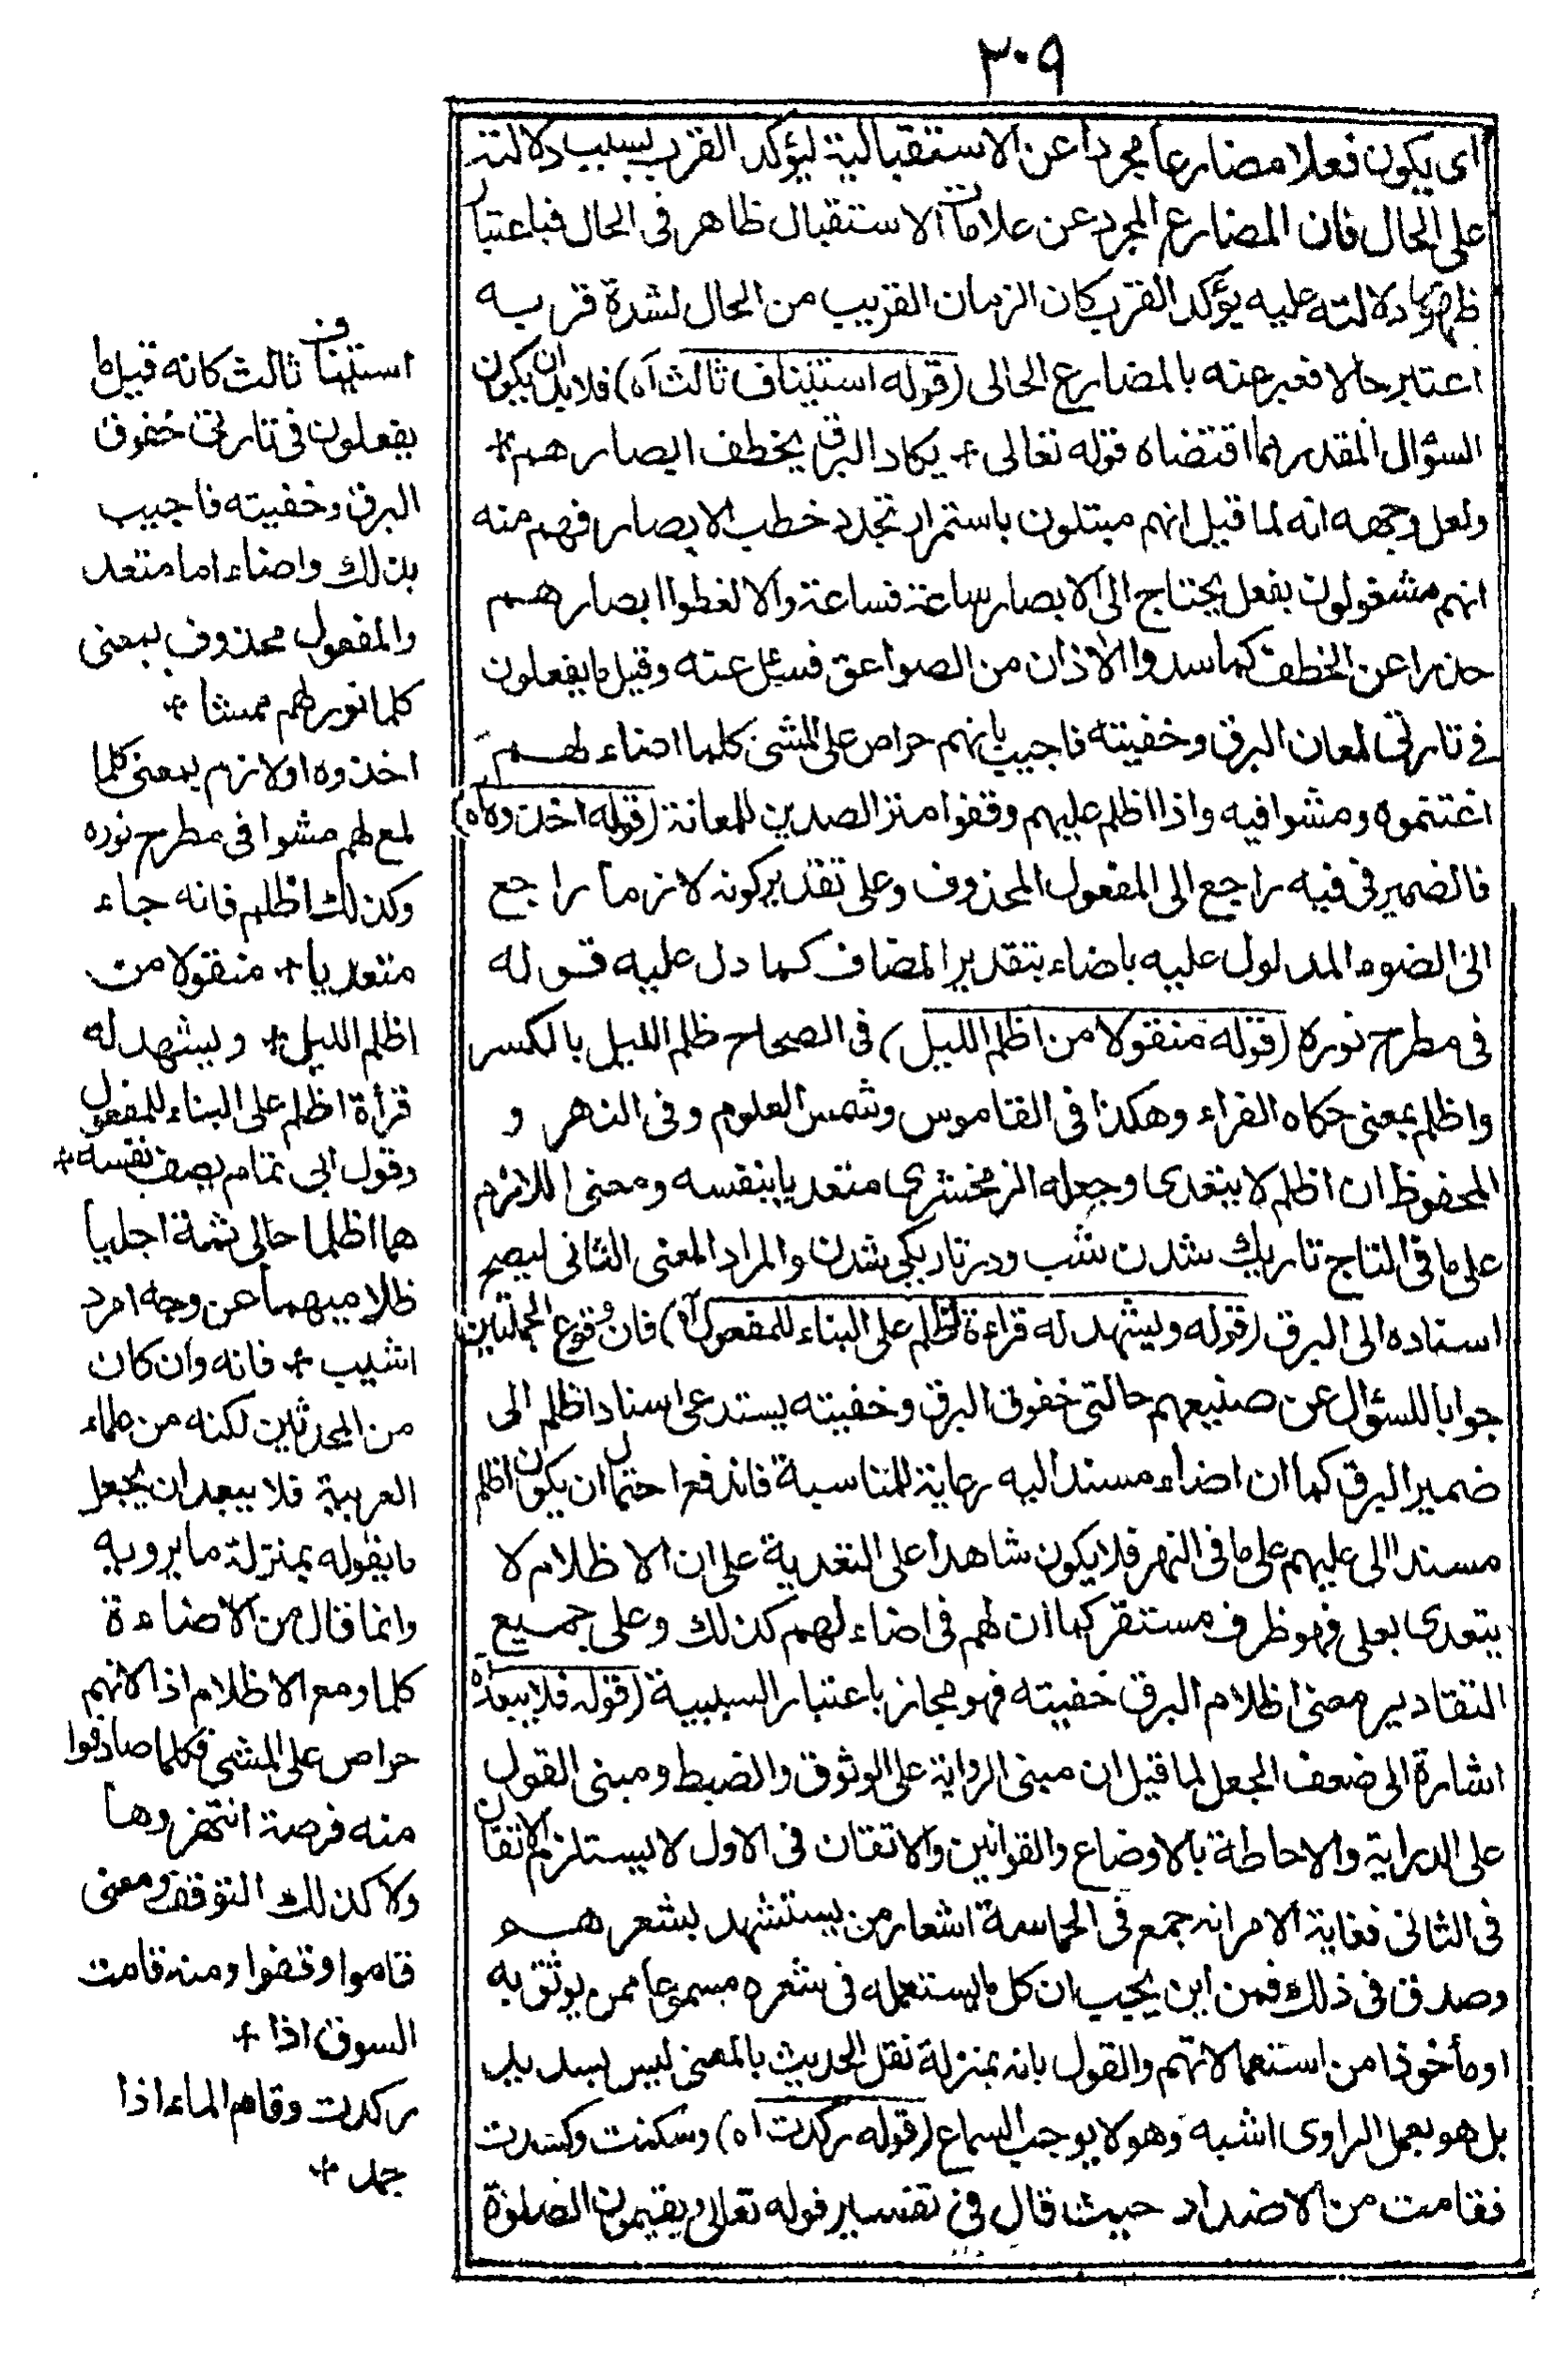 ٣٠٩
اى يكون فعلا مضارعا مجردا عن الاستقبالية ليؤكد القرب بسبب دلالته
على الحال فان المضارع المجرد عن علامات الاستقبال ظاهر فى الحال فباعتبار
ظهور دلالته عليه يؤكد القرب كان الزمان القريب من الحال لشدة قربه
اعتبر حالا فعبر عنه بالمضارع الحالى (قوله استيناف ثالث اه) فلابد ان يكون
السؤال المقدر مما اقتضاه قوله تعالى + يكاد البرق يخطف ابصارهم +
ولعل وجهه انه لما قيل انهم مبتلون باستمرار تجدد خطب الابصار فهم منه
انهم مشغولون بفعل يحتاج الى الابصار ساعة فساعة والا لغطوا ابصارهم
حذرا عن الخطف كما سدوا الاذان من الصواعق فسئل عنه وقيل ما يفعلون
فى تارتى لمعان البرق وخفيته فاجيب بانهم حراص على المشى كلما اضاء لهم
اغتنموه ومشوا فيه واذا اظلم عليهم وقفوا منتر الصدين للمعانة (قوله اخذوه اه)
فالضمير فى فيه راجع الى المفعول المحذوف وعلى تقدير كونه لازما راجع
الى الضوء المدلول عليه باضاء بتقدير المضاف كما دل عليه قوله
فى مطرح نوره (قوله منقولا من اظلم الليل) فى الصحاح ظلم الليل بالكسر
واظلم بمعنى حكاه الفراء وهكذا فى القاموس وشمس العلوم وفى النهر و
المحفوظ ان اظلم لا يتعدى وجعله الزمخشرى متعديا بنفسه ومعنى اللازم
على ما فى التاج تاريك شدن شب ودر تاريكى شدن والمراد المعنى الثانى ليصح
اسناده الى البرق (قوله ويشهد له قراءة اظلم على البناء للمفعول اه) فان وقوع الجملتين
جوابا للسؤال عن صنيعهم حالتى خفوق البرق وخفيته يستدعى اسناد اظلم الى
ضمير البرق كما ان اضاء مسند اليه رعاية للمناسبة فاندفع احتمال ان يكون اظلم
مسندا الى عليهم على ما فى النهر فلا يكون شاهدا على التعدية على ان الاظلام لا
يتعدى بعلى فهو ظرف مستقر كما ان لهم فى اضاء لهم كذلك وعلى جميع
التقادير معنى اظلام البرق خفيته فهو مجاز باعتبار السببية (قوله فلا يبعد اه)
اشارة الى ضعف الجعل لما قيل ان مبنى الرواية على الوثوق والضبط ومبنى القول
على الدراية والاحاطة بالاوضاع والقوانين والاتقان فى الاول لا يستلزم الاتقان
فى الثانى فغاية الامر انه جمع فى الحماسة اشعار من يستشهد بشعرهم
وصدق فى ذلك فمن اين يجيب ان كل ما يستعمله فى شعره مسموعا ممن يوثق به
او مأخوذا من استعمالاتهم والقول بانه بمنزلة نقل الحديث بالمعنى ليس بسديد
بل هو بعمل الراوى اشبه وهو لا يوجب السماع (قوله ركدت اه) وسكنت وكسدت
فقامت من الاضداد حيث قال فى تفسير قوله تعالى ويقيمون الصلوة
استيناف ثالث كانه قيل ما
يفعلون فى تارتى خفوق
البرق وخفيته فاجيب
بذلك واضاء اما متعد
والمفعول محذوف بمعنى
كلما نور لهم ممشا +
اخذوه او لازم بمعنى كلما
لمع لهم مشوا فى مطرح نوره
وكذلك اظلم فانه جاء
متعديا + منقولا من
اظلم الليل + ويشهد له
قرأة اظلم على البناء للمفعول
وقول ابى تمام يصف نفسه +
هما اظلما حالى ثمة اجليا
ظلاميهما عن وجه امرد
اشيب + فانه وان كان
من المحدثين لكنه من علماء
العربية فلا يبعد ان يجعل
ما يقوله بمنزلة ما يرويه
وانما قال من الاضاءة
كلما ومع الاظلام اذا لانهم
حراص على المشى فكلما صادفوا
منه فرصة انتهزوها
ولا كذلك التوقف ومعنى
قاموا وقفوا ومنه قامت
السوق اذا +
ركدت وقام الماء اذا
جمد +